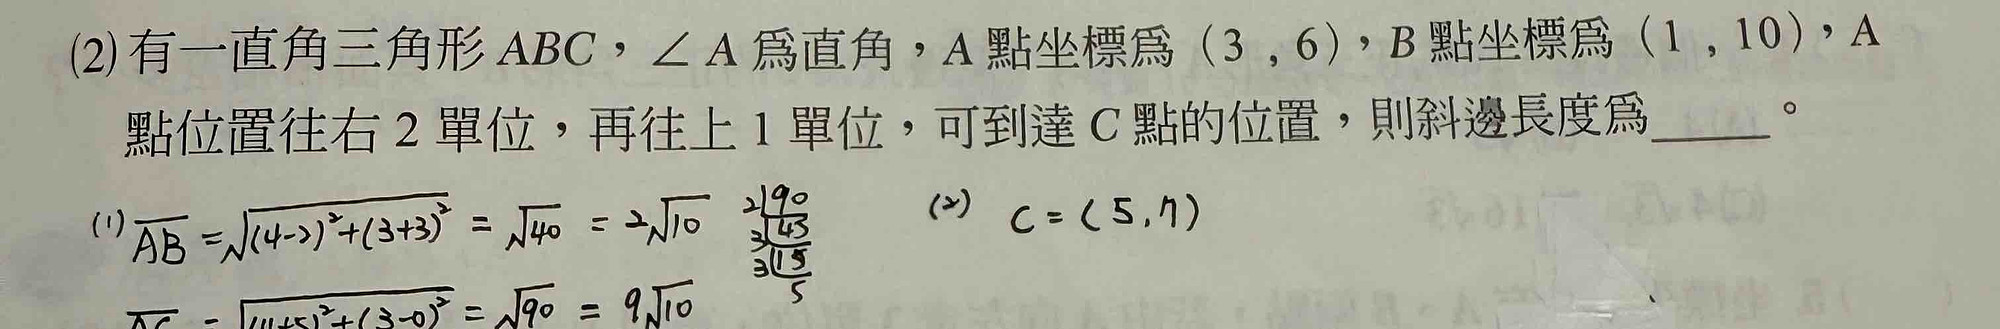 (2)有一直角三角形 ABC，∠A 爲直角，A 點坐標爲（3 , 6），B 點坐標爲（1 , 10），A
點位置往右 2 單位，再往上 1 單位，可到達 C 點的位置，則斜邊長度爲_____。
(1) AB = √(4-2)²+(3+3)² = √40 = 2√10
2|90
3|45
3|15
5
(2) C = (5,7)
AC = √(4+5)²+(3-0)² = √90 = 9√10